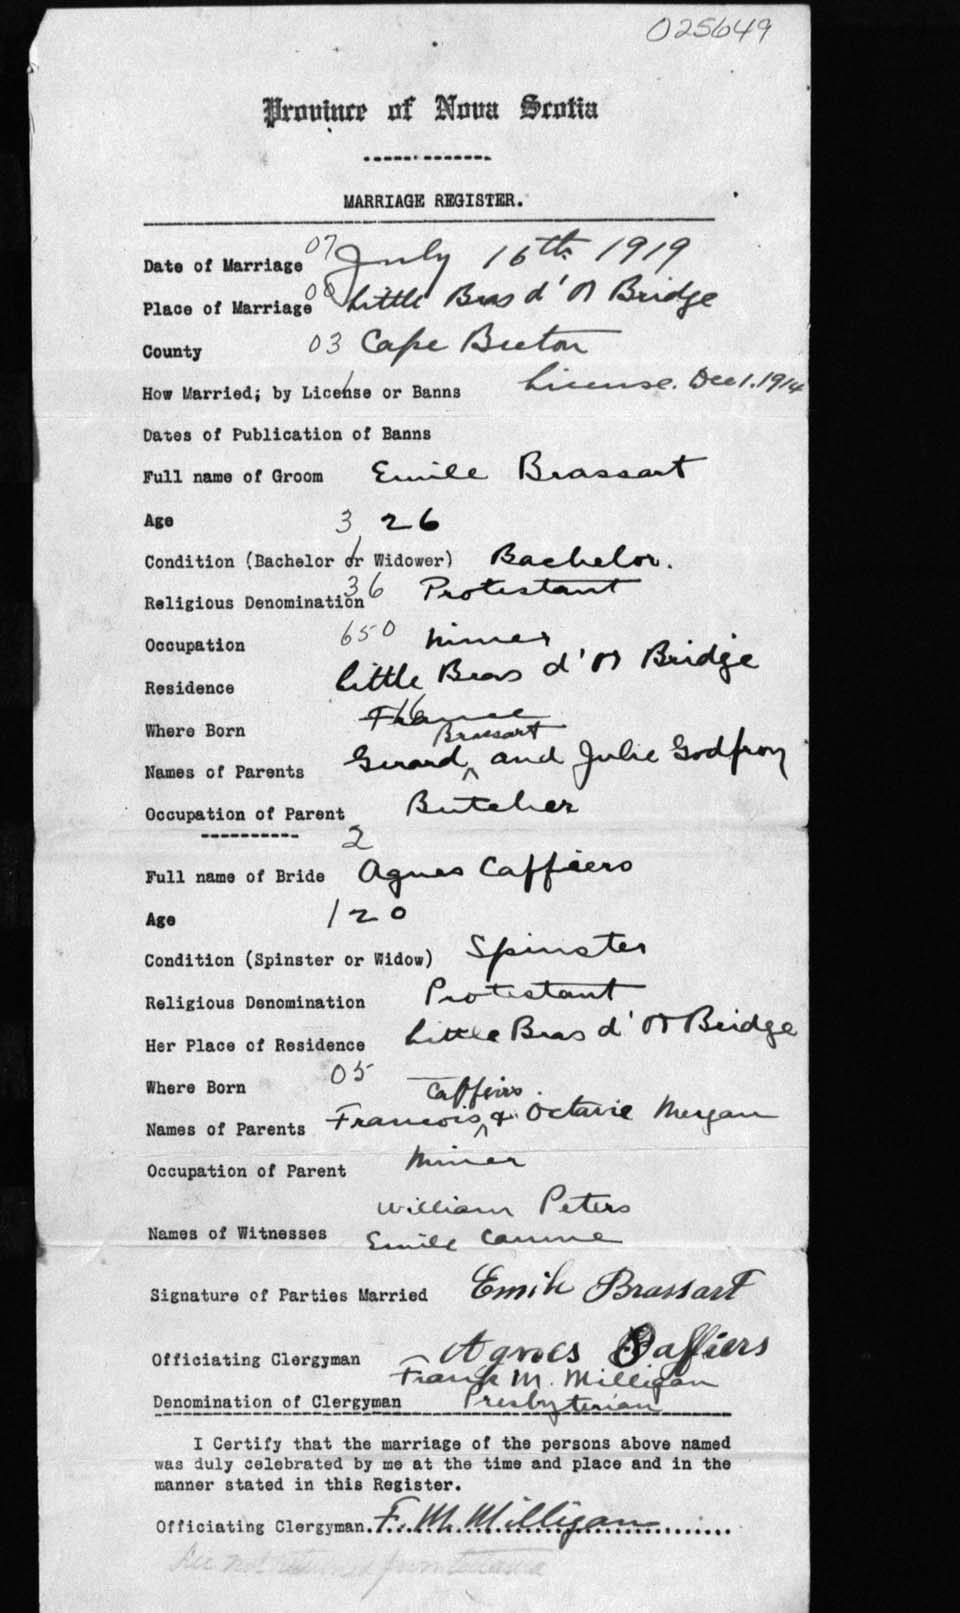 025649
Province of Nova Scotia
MARRIAGE REGISTER.
Date of Marriage 07 July 15th 1919
Place of Marriage 00 Little Bras d'Or Bridge
County 03 Cape Breton
How Married; by License or Banns License. Dec 1. 1914
Dates of Publication of Banns
Full name of Groom Emile Brassart
Age 3 26
Condition (Bachelor or Widower) Bachelor.
Religious Denomination 36 Protestant
Occupation 650 Miner
Residence Little Bras d'Or Bridge
Where Born 16 France
Brassart
Names of Parents Gerard ^ and Julie Godfroy
Occupation of Parent Butcher
2
Full name of Bride Agnes Caffiers
Age 1 20
Condition (Spinster or Widow) Spinster
Religious Denomination Protestant
Her Place of Residence Little Bras d'Or Bridge
Where Born 05
Caffiers.
Names of Parents Francois ^ & Octavie Mergan
Occupation of Parent Miner
William Peters
Names of Witnesses Emile
Signature of Parties Married Emile Brassart
Agnes Caffiers
Officiating Clergyman Frank M. Milligan
Denomination of Clergyman Presbyterian
I Certify that the marriage of the persons above named
was duly celebrated by me at the time and place and in the
manner stated in this Register.
Officiating Clergyman. F. M. Milligan